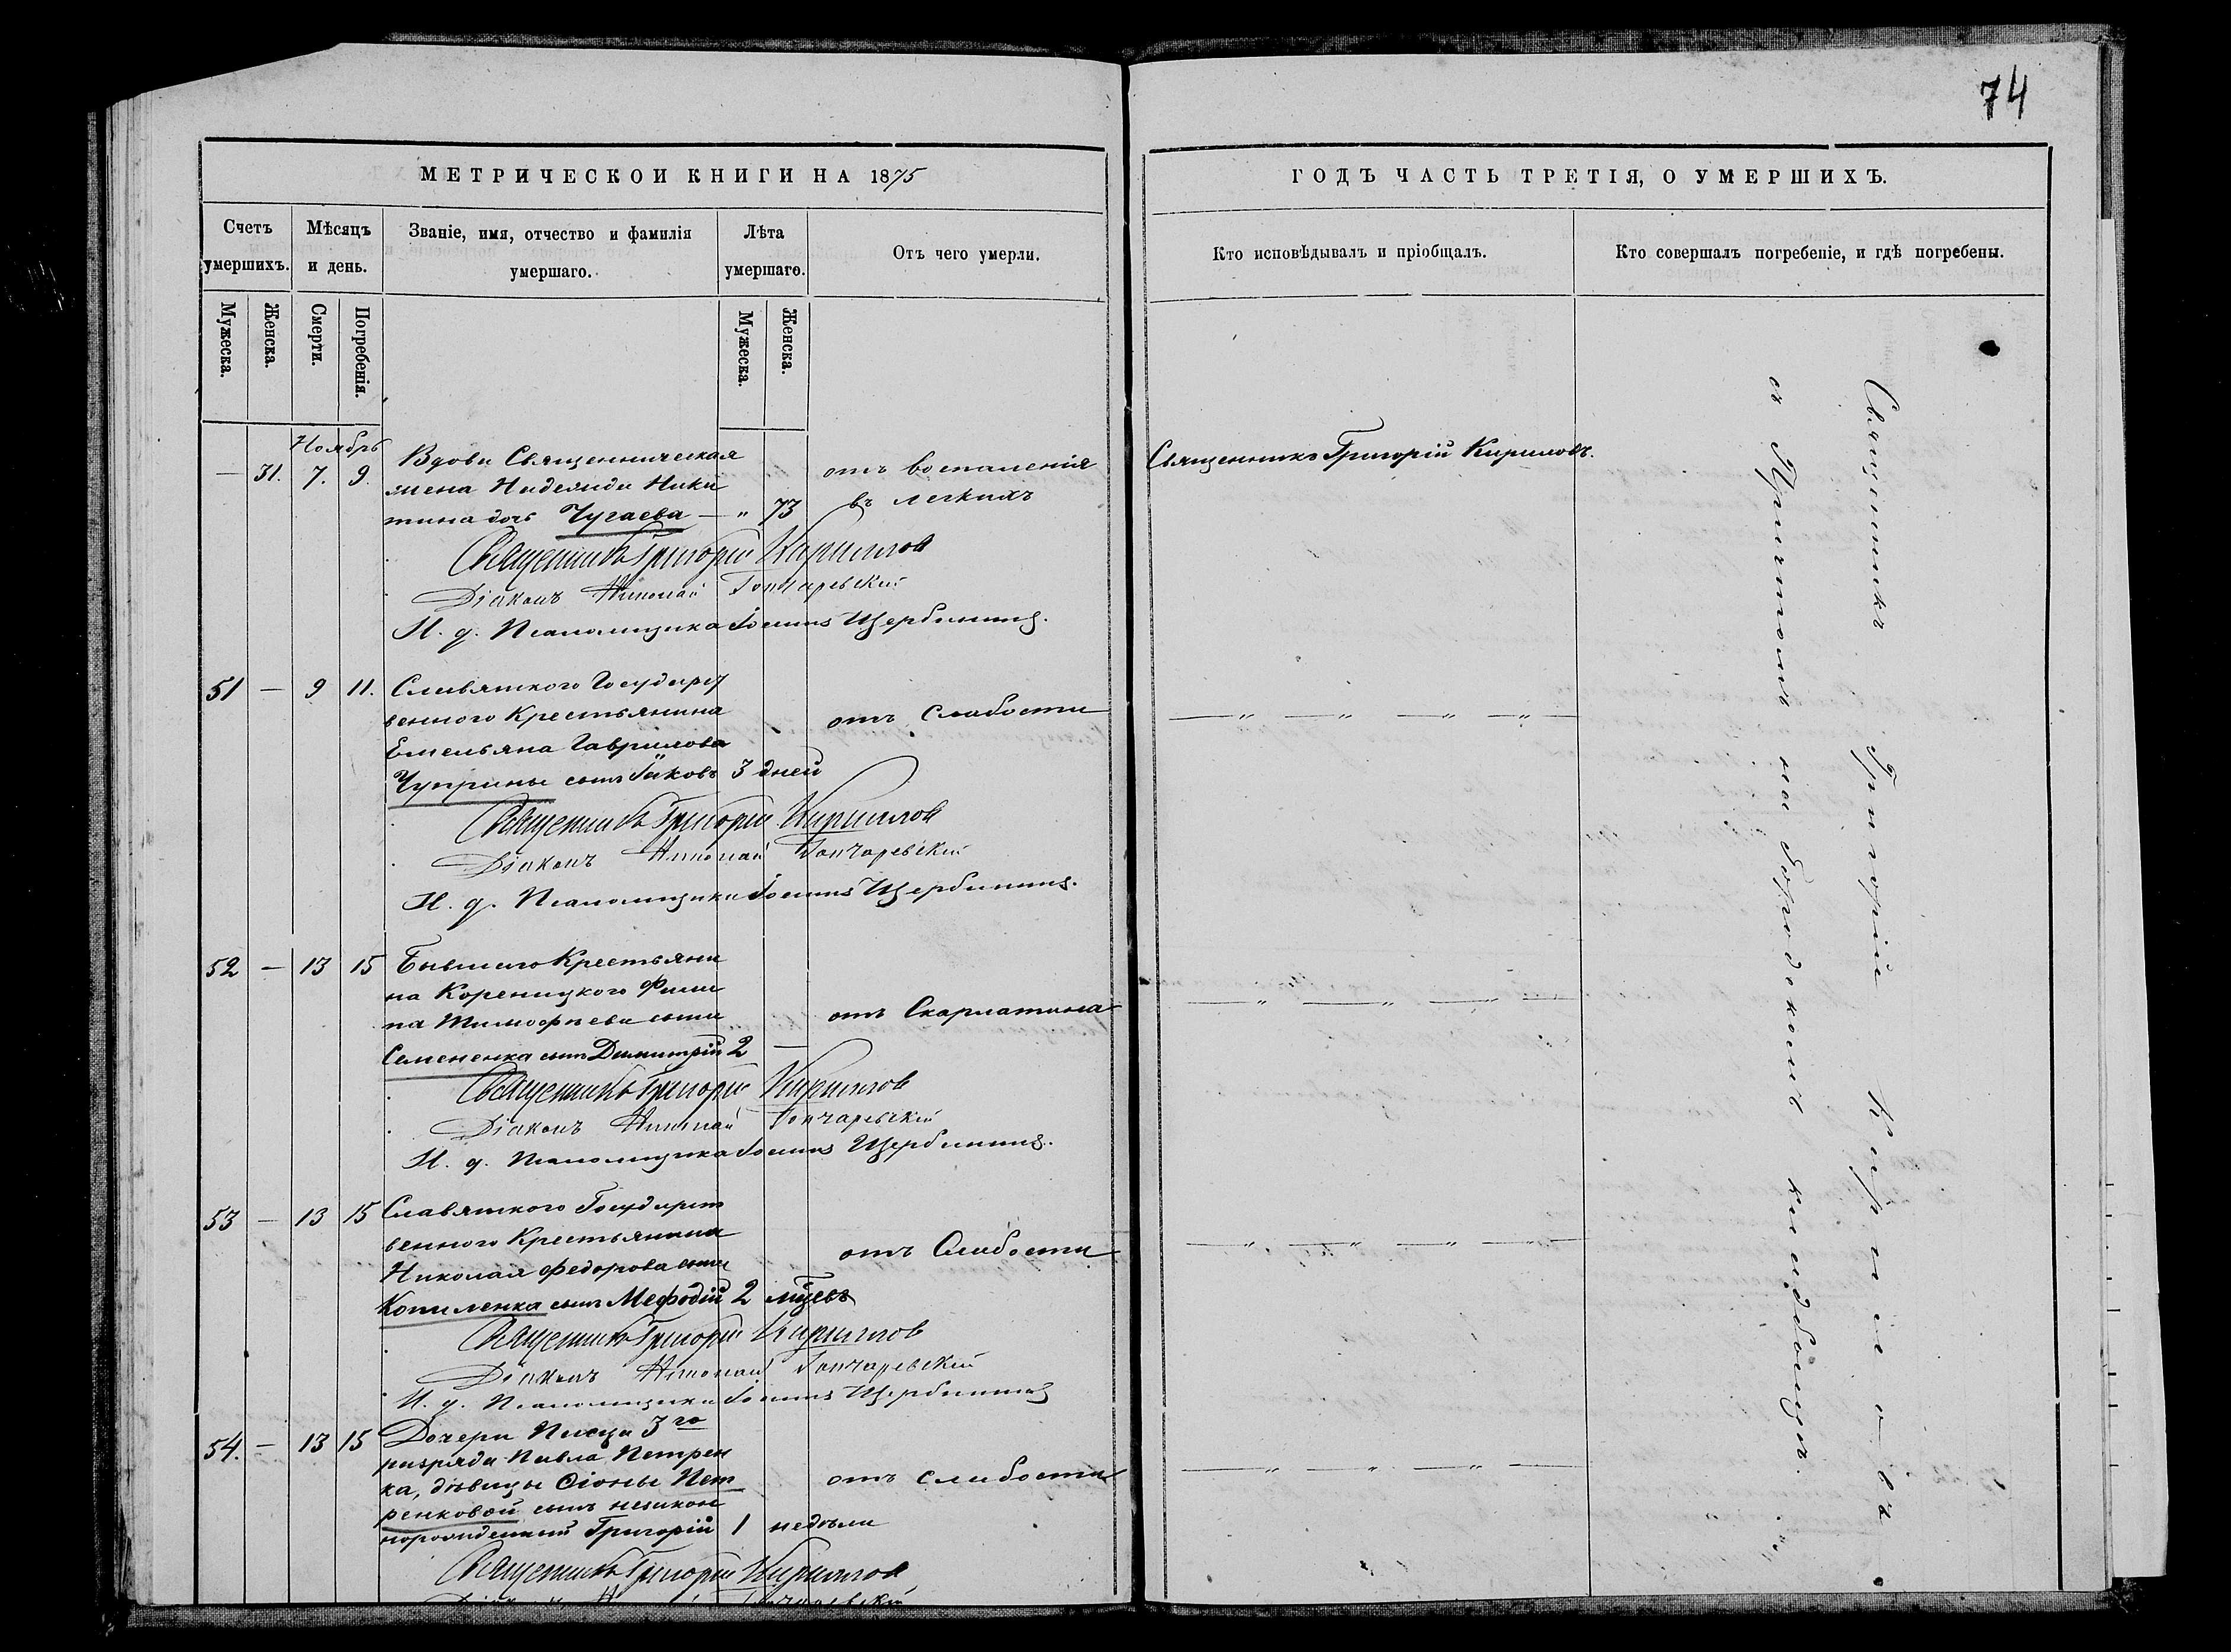 74
МЕТРИЧЕСКОЙ КНИГИ НА 1875
ГОДЪ ЧАСТЬ ТРЕТІЯ, О УМЕРШИХЪ.
Счетъ умершихъ.
Мѣсяцъ и день.
Званіе, имя, отчество и фамилія умершаго.
Лѣта умершаго.
Отъ чего умерли.
Кто исповѣдывалъ и пріобщалъ.
Кто совершалъ погребеніе, и гдѣ погребены.
Мужеска.
Женска.
Смерти.
Погребенія.
Мужеска.
Женска.
Ноябрь
— 31. 7. 9. Вдова Священническая
жена Надежда Ники
тина дочь Чугаева — " 73
отъ воспаленія
въ легкихъ
Священникъ Григорій Кириловъ.
Священникъ Григорій Кириллов
Діаконъ Николай Гончаревскій
И. д. Псаломщика Іоаннъ Щербининъ.
51 — 9 11. Славянскаго Государст
венного Крестьянина
Емельяна Гаврилова
Чуприны сынъ Іаковъ 3 дней
отъ слабости
— " — " — " — " —
Священникъ Григорій Кириллов
Діаконъ Николай Гончаревскій
И. д. Псаломщика Іоаннъ Щербининъ.
52 — 13 15 Бывшаго Крестьяни
на Кореницкого Фили
па Тимофѣева сына
Семененка сынъ Димитрій 2 —
отъ Скарлатина
— " — " — " — " —
Священникъ Григорій Кириллов
Діаконъ Николай Гончаревскій
И. д. Псаломщика Іоаннъ Щербининъ.
53 — 13 15 Славянского Государст
венного Крестьянина
Николая Федорова сына
Копиленка сынъ Мефодій 2 мѣсев
отъ Слабости
— " — " — " — " —
Священникъ Григорій Кириллов
Діаконъ Николай Гончаревскій
И. д. Псаломщика Іоаннъ Щербининъ
54. — 13 15 Дочери Писца 3го
разряда Павла Петрен
ка, дѣвицы Ѳіоны Пет
ренковой сынъ незакон
норожденный Григорій 1 недѣли
отъ слабости
— " — " — " —
Священникъ Григорій Кириллов
Гончаревскій
Священникъ Григорій Кириловъ
съ Причтомъ на городскомъ кладбищѣ.